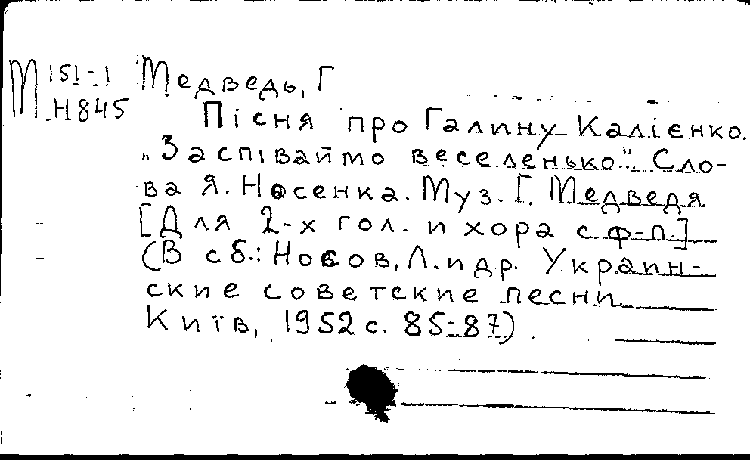 М 151-1 Медведь, Г
Н845
Пісня про Галину Калієнко.
„Заспіваймо веселенько". Сло-
ва Я. Носенка. Муз. Г. Медведя
[Для 2-х гол. и хора с ф-п.]
(В сб.: Носов, Л. и др. Украин-
ские советские песни
Київ, 1952 с. 85-87).